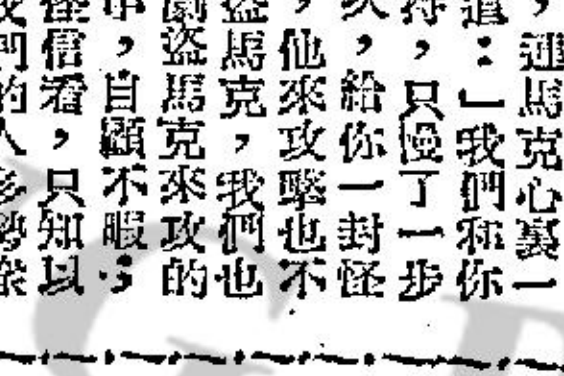 ，連馬克心裏一
道：「我們和你
得，只慢了一步
久，給你一封怪
，他來攻擊也不
盜馬克，我們也
劇盜馬克來攻的
中，自顧不暇；
怪信看，只知以
我們的人多勢衆